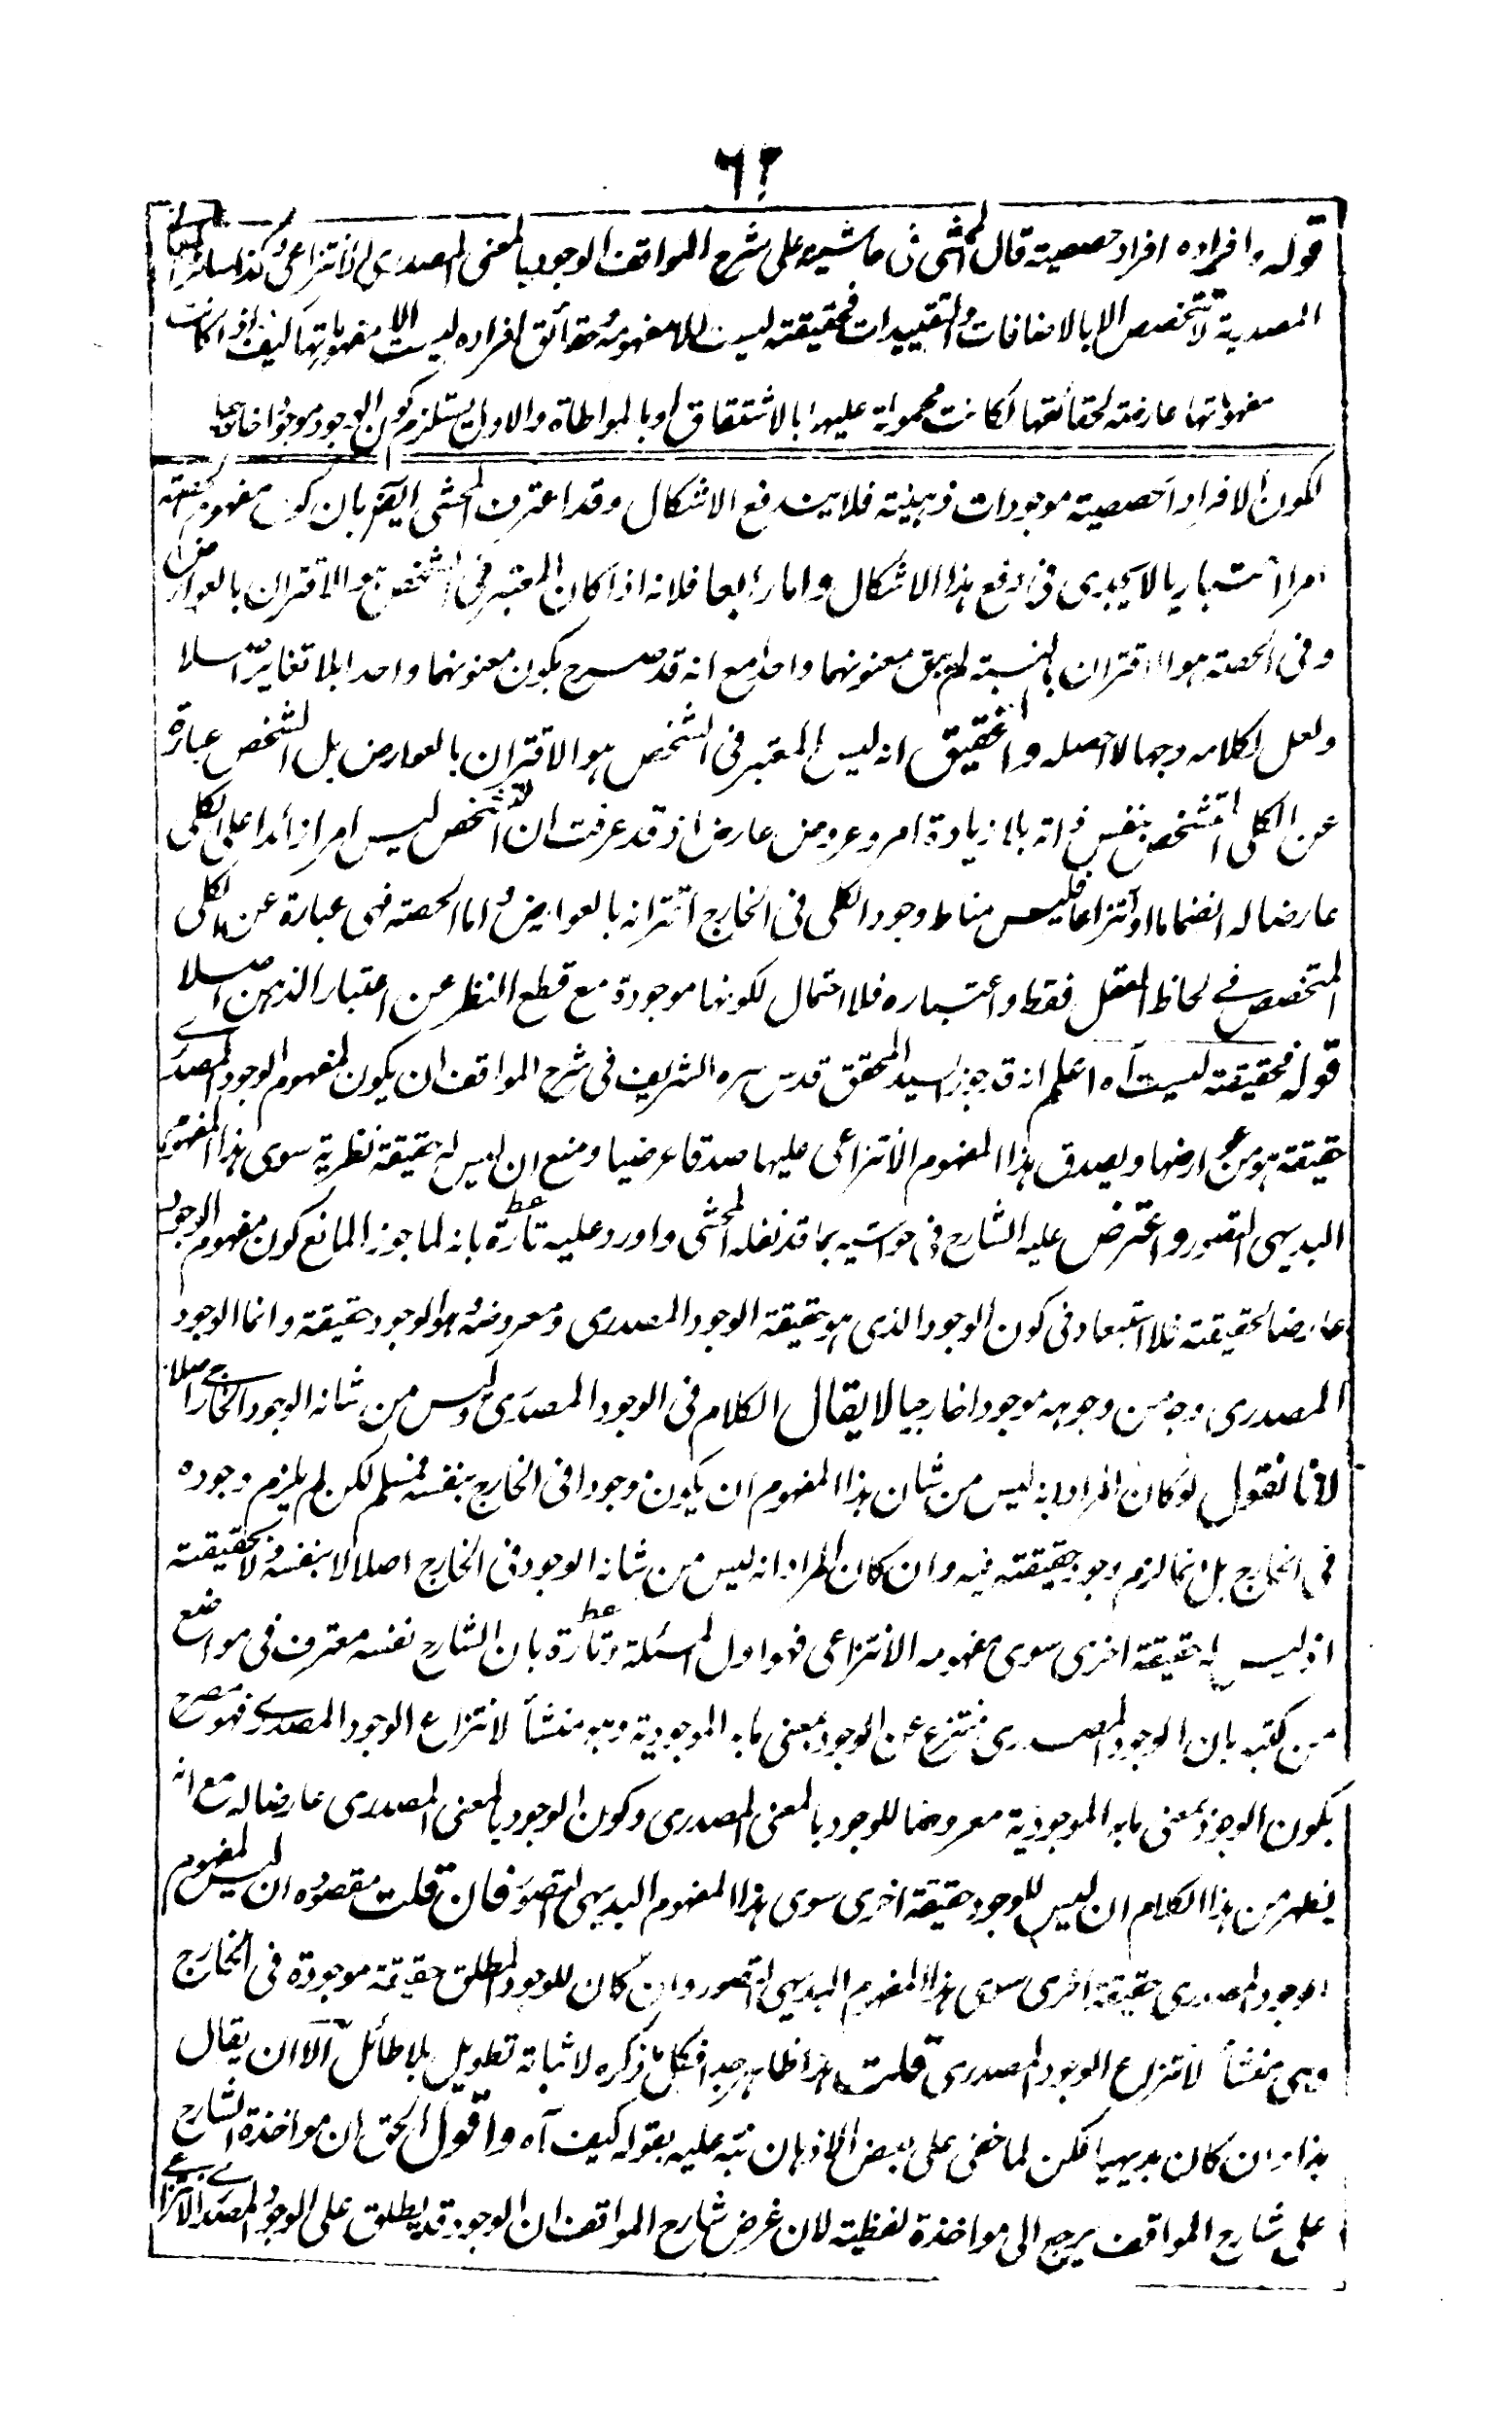 ٦٢
قوله وافراده افراد حصصية قال المحشى فى حاشيته على شرح المواقف الوجود بالمعنى المصدرى الانتزاعى وكذا سائر المعانى
المصدرية لا تتخصص الا بالاضافات والتقييدات فحقيقته ليست الا مفهومه وحقائق افراده ليست الا مفهوماتها كيف اذا كانت
مفهوماتها عارضة لحقائقها لكانت محمولة عليها بالاشتقاق او بالمواطاة والاول يستلزم كون الوجود موجودا خارجيا
لكون الافراد الحصصية موجودات ذهنية فلا يندفع الاشكال وقد اعترف المحشى ايضا بان كون مفهوم الحصة
امرا اعتباريا لا يجدى فى دفع هذا الاشكال واما رابعا فلانه اذا كان المعتبر فى الشخص هو الاقتران بالعوارض
وفى الحصة هو الاقتران بالنسبة لم يبق معنونهما واحدا مع انه قد صرح بكون معنونهما واحدا بلا تغاير اصلا
ولعل لكلامه وجها لا احصله والتحقيق انه ليس المعتبر فى الشخص هو الاقتران بالعوارض بل الشخص عبارة
عن الكلى المتشخص بنفس ذاته بلا زيادة امر وعروض عارض اذ قد عرفت ان التشخص ليس امرا زائدا على الكلى
عارضا له انضماما او انتزاعا فليس مناط وجود الكلى فى الخارج اقترانه بالعوارض واما الحصة فهى عبارة عن الكلى
المتخصص فى لحاظ العقل فقط واعتباره فلا احتمال لكونها موجودة مع قطع النظر عن اعتبار الذهن اصلا
قوله فحقيقته ليست آه اعلم انه قد جوز السيد المحقق قدس سره الشريف فى شرح المواقف ان يكون لمفهوم الوجود المصدرى
حقيقة هو من عوارضها ويصدق هذا المفهوم الانتزاعى عليها صدقا عرضيا ومنع ان ليس له حقيقة نظرية سوى هذا المفهوم
البديهى التصور واعترض عليه الشارح فى حواشيه بما قد نقله المحشى واورد عليه تارة بانه لما جوز المانع كون مفهوم الوجود
عارضا لحقيقته فلا استبعاد فى كون الوجود الذى هو حقيقة الوجود المصدرى ومعروضه هو الوجود حقيقة وانما الوجود
المصدرى وجه من وجوهه موجودا خارجيا لا يقال الكلام فى الوجود المصدرى وليس من شانه الوجود الخارجى اصلا
لانا نقول لو كان المراد انه ليس من شان هذا المفهوم ان يكون موجودا فى الخارج بنفسه فمسلم لكن لم يلزم وجوده
فى الخارج بل انما لزم وجود حقيقته فيه وان كان المراد انه ليس من شانه الوجود فى الخارج اصلا لا بنفسه ولا بحقيقته
اذ ليس له حقيقة اخرى سوى مفهومه الانتزاعى فهو اول المسئلة وتارة بان الشارح نفسه معترف فى مواضع
من كتبه بان الوجود المصدرى منتزع عن الوجود بمعنى ما به الموجودية وهو منشأ لانتزاع الوجود المصدرى فهو مصرح
بكون الوجود بمعنى ما به الموجودية معروضا للوجود بالمعنى المصدرى وكون الوجود بالمعنى المصدرى عارضا له مع انه
يظهر من هذا الكلام ان ليس للوجود حقيقة اخرى سوى هذا المفهوم البديهى التصور فان قلت مقصوده ان ليس لمفهوم
الوجود المصدرى حقيقة اخرى سوى هذا المفهوم البديهى التصور وان كان للوجود المطلق حقيقة موجودة فى الخارج
وهى منشأ لانتزاع الوجود المصدرى قلت هذا ظاهر جدا فكل ما ذكره لاثباته تطويل بلا طائل الا ان يقال
هذا وان كان بديهيا لكن لما خفى على بعض الاذهان نبه عليه بقوله كيف آه واقول الحق ان مواخذة الشارح
على شارح المواقف يرجع الى مواخذة لفظية لان غرض شارح المواقف ان الوجود قد يطلق على الوجود المصدرى الانتزاعى